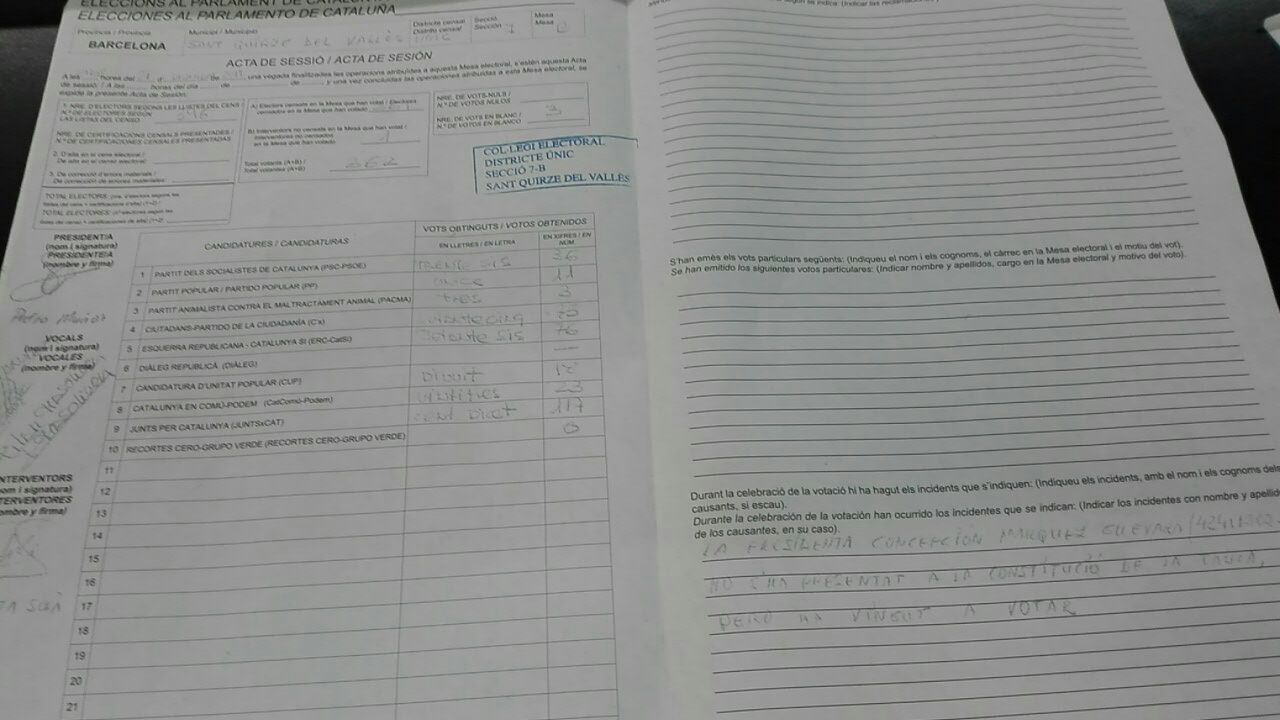 ELECCIONS AL PARLAMENT DE CATALUNYA
ELECCIONES AL PARLAMENTO DE CATALUÑA
Província / Provincia
BARCELONA
Municipi / Municipio
SANT QUIRZE DEL VALLÈS
Districte censal
Distrito censal
Secció
Sección 7
Mesa
Mesa
ACTA DE SESSIÓ / ACTA DE SESIÓN
A les hores del de de una vegada finalitzades les operacions atribuïdes a aquesta Mesa electoral, s'estén aquesta Acta
de sessió. / A las horas del día de de y una vez concluidas las operaciones atribuidas a esta Mesa electoral, se
expide la presente Acta de Sesión.
1. NRE. D'ELECTORS SEGONS LES LLISTES DEL CENS /
N.º DE ELECTORES SEGÚN
LAS LISTAS DEL CENSO
NRE. DE CERTIFICACIONS CENSALS PRESENTADES /
N.º DE CERTIFICACIONES CENSALES PRESENTADAS
2. D'alta en el cens electoral /
De alta en el censo electoral
3. De correcció d'errors materials /
De corrección de errores materiales
TOTAL ELECTORS:
TOTAL ELECTORES:
A) Electors censats en la Mesa que han votat / Electores
censados en la Mesa que han votado
B) Interventors no censats en la Mesa que han votat /
Interventores no censados
en la Mesa que han votado 1
Total votants (A+B) /
Total votantes (A+B) 362
NRE. DE VOTS NULS /
N.º DE VOTOS NULOS
NRE. DE VOTS EN BLANC /
N.º DE VOTOS EN BLANCO 3
COL·LEGI ELECTORAL
DISTRICTE ÚNIC
SECCIÓ 7-B
SANT QUIRZE DEL VALLÈS
PRESIDENT/A
(nom i signatura)
PRESIDENTE/A
(nombre y firma)
VOCALS
(nom i signatura)
VOCALES
(nombre y firma)
INTERVENTORS
(nom i signatura)
INTERVENTORES
(nombre y firma)
CANDIDATURES / CANDIDATURAS
VOTS OBTINGUTS / VOTOS OBTENIDOS
EN LLETRES / EN LETRA
EN XIFRES / EN NÚM.
1 PARTIT DELS SOCIALISTES DE CATALUNYA (PSC-PSOE) TRENTA SIS 36
2 PARTIT POPULAR / PARTIDO POPULAR (PP) ONZE 11
3 PARTIT ANIMALISTA CONTRA EL MALTRACTAMENT ANIMAL (PACMA) tres 3
4 CIUTADANS-PARTIDO DE LA CIUDADANÍA (C's)
5 ESQUERRA REPUBLICANA - CATALUNYA SÍ (ERC-CatSí) 76
6 DIÀLEG REPUBLICÀ (DIÀLEG) —
7 CANDIDATURA D'UNITAT POPULAR (CUP) DIVUIT
8 CATALUNYA EN COMÚ-PODEM (CatComú-Podem) 23
9 JUNTS PER CATALUNYA (JUNTSxCAT) 117
10 RECORTES CERO-GRUPO VERDE (RECORTES CERO-GRUPO VERDE) 0
11
12
13
14
15
16
17
18
19
20
21
S'han emès els vots particulars següents: (Indiqueu el nom i els cognoms, el càrrec en la Mesa electoral i el motiu del vot).
Se han emitido los siguientes votos particulares: (Indicar nombre y apellidos, cargo en la Mesa electoral y motivo del voto).
Durant la celebració de la votació hi ha hagut els incidents que s'indiquen: (Indiqueu els incidents, amb el nom i els cognoms dels
causants, si escau).
Durante la celebración de la votación han ocurrido los incidentes que se indican: (Indicar los incidentes con nombre y apellidos
de los causantes, en su caso).
LA PRESIDENTA CONCEPCIÓN MARQUEZ GUEVARA
NO S'HA PRESENTAT A LA CONSTITUCIÓ DE LA TAULA,
PERO HA VINGUT A VOTAR